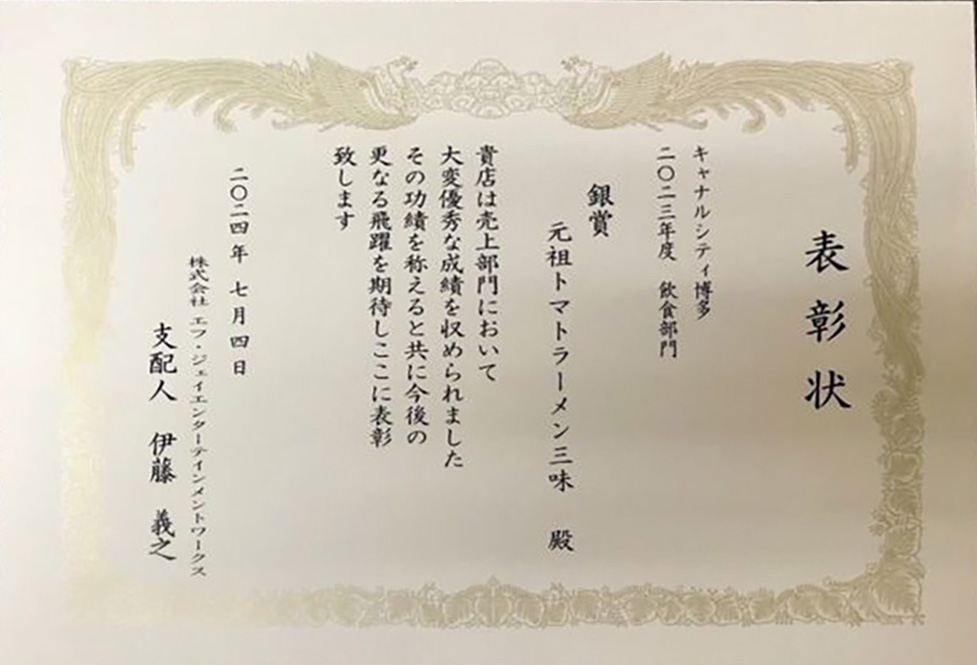 表彰状
キャナルシティ博多
二〇二三年度 飲食部門
銀賞
元祖トマトラーメン三味 殿
貴店は売上部門において
大変優秀な成績を収められました
その功績を称えると共に今後の
更なる飛躍を期待しここに表彰
致します
二〇二四年 七月四日
株式会社 エフ・ジェイエンターテインメントワークス
支配人 伊藤 義之